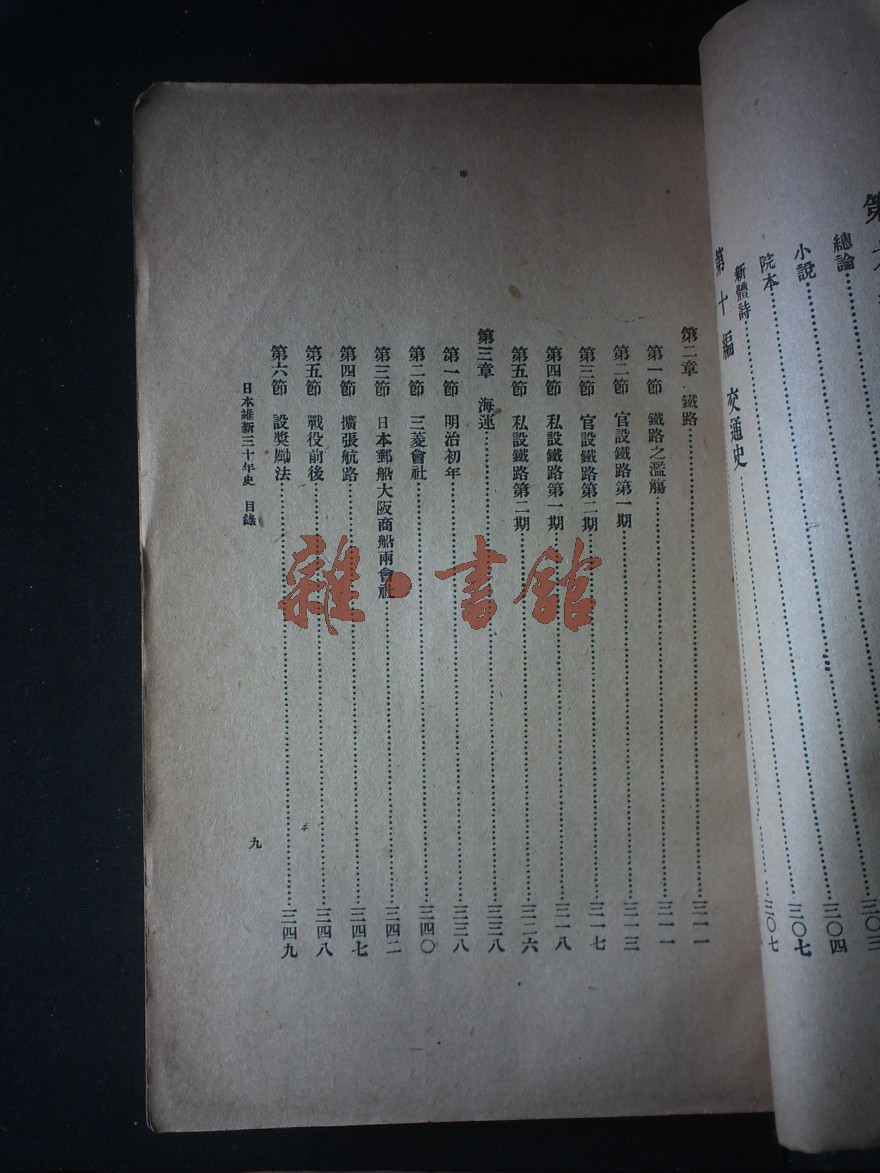 總論……三〇四
小說……三〇七
院本
新體詩……三〇七
第十編 交通史
第二章 鐵路……三一一
第一節 鐵路之濫觴……三一一
第二節 官設鐵路第一期……三一三
第三節 官設鐵路第二期……三一七
第四節 私設鐵路第一期……三一八
第五節 私設鐵路第二期……三二六
第三章 海運……三三八
第一節 明治初年……三三八
第二節 三菱會社……三四〇
第三節 日本郵船大阪商船兩會社……三四二
第四節 擴張航路……三四七
第五節 戰役前後……三四八
第六節 設獎勵法……三四九
日本維新三十年史 目錄
九
雜·書館